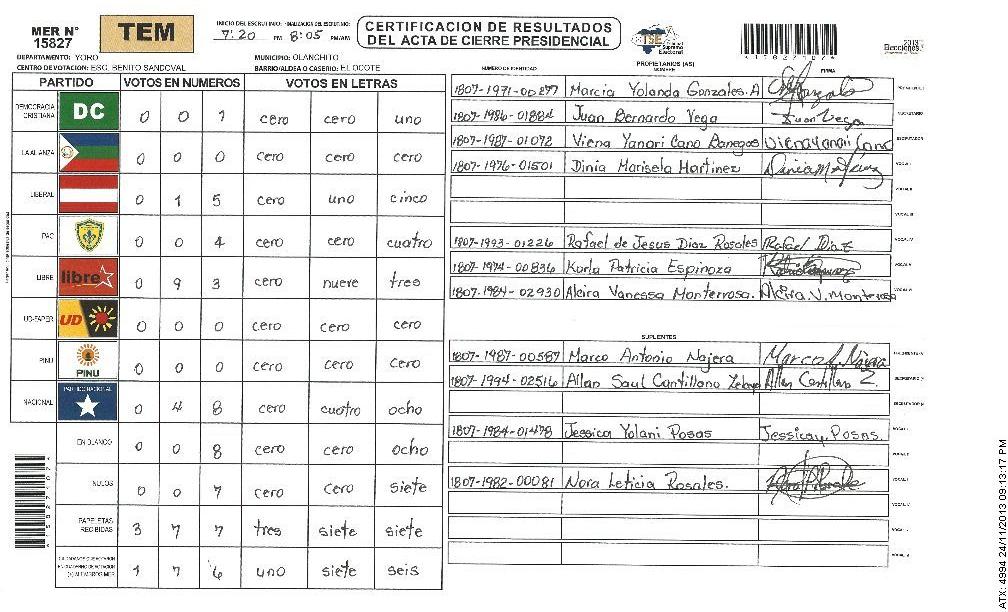 MER N° 15827
TEM
INICIO DEL ESCRUTINIO: FINALIZACIÓN DEL ESCRUTINIO:
7:20 PM 8:05 PM/AM
CERTIFICACION DE RESULTADOS
DEL ACTA DE CIERRE PRESIDENCIAL
TSE
Tribunal Supremo Electoral
2013 Elecciones
DEPARTAMENTO: YORO
MUNICIPIO: OLANCHITO
CENTRO DE VOTACION: ESC. BENITO SANDOVAL
BARRIO/ALDEA O CASERIO: EL OCOTE
PARTIDO VOTOS EN NUMEROS VOTOS EN LETRAS
DEMOCRACIA CRISTIANA DC 0 0 1 cero cero uno
LA ALIANZA 0 0 0 cero cero cero
LIBERAL 0 1 5 cero uno cinco
PAC 0 0 4 cero cero cuatro
LIBRE libre 0 9 3 cero nueve tres
UD-FAPER UD 0 0 0 cero cero cero
PINU PINU 0 0 0 cero cero cero
NACIONAL PARTIDO NACIONAL 0 4 8 cero cuatro ocho
EN BLANCO 0 0 8 cero cero ocho
NULOS 0 0 7 cero cero siete
PAPELETAS RECIBIDAS 3 7 7 tres siete siete
CIUDADANOS QUE VOTARON EN CUADERNO DE VOTACION (+) MIEMBROS MER 1 7 6 uno siete seis
NUMERO DE IDENTIDAD PROPIETARIOS (AS) NOMBRE FIRMA
1807-1971-00277 Marcia Yolanda Gonzales. A
1807-1986-01884 Juan Bernardo Vega Juan Vega SECRETARIO
1807-1987-01072 Viena Yanari Cano Banegas ESCRUTADOR
1807-1976-01501 Dinia Marisela Martinez VOCAL I
VOCAL II
VOCAL III
1807-1993-01226 Rafael de Jesus Diaz Rosales Rafael Diaz VOCAL IV
1807-1974-00836 Karla Patricia Espinoza VOCAL V
1807-1984-02930 Alcira Vanessa Monterrosa. Alcira V. Monterrosa
SUPLENTES
1807-1987-00587 Marco Antonio Najera
1807-1994-02516 Allan Saul Cantillano Zelaya
1807-1984-01478 Jessica Yolani Posas Jessica y. Posas.
1807-1982-00081 Nora Leticia Rosales.
ATX: 4994 24/11/2013 09:13:17 PM